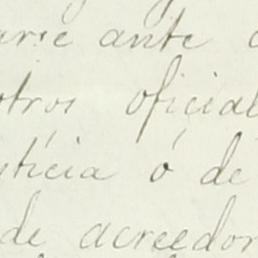 arse ante
otros oficial
sticia ó de
de acreedor